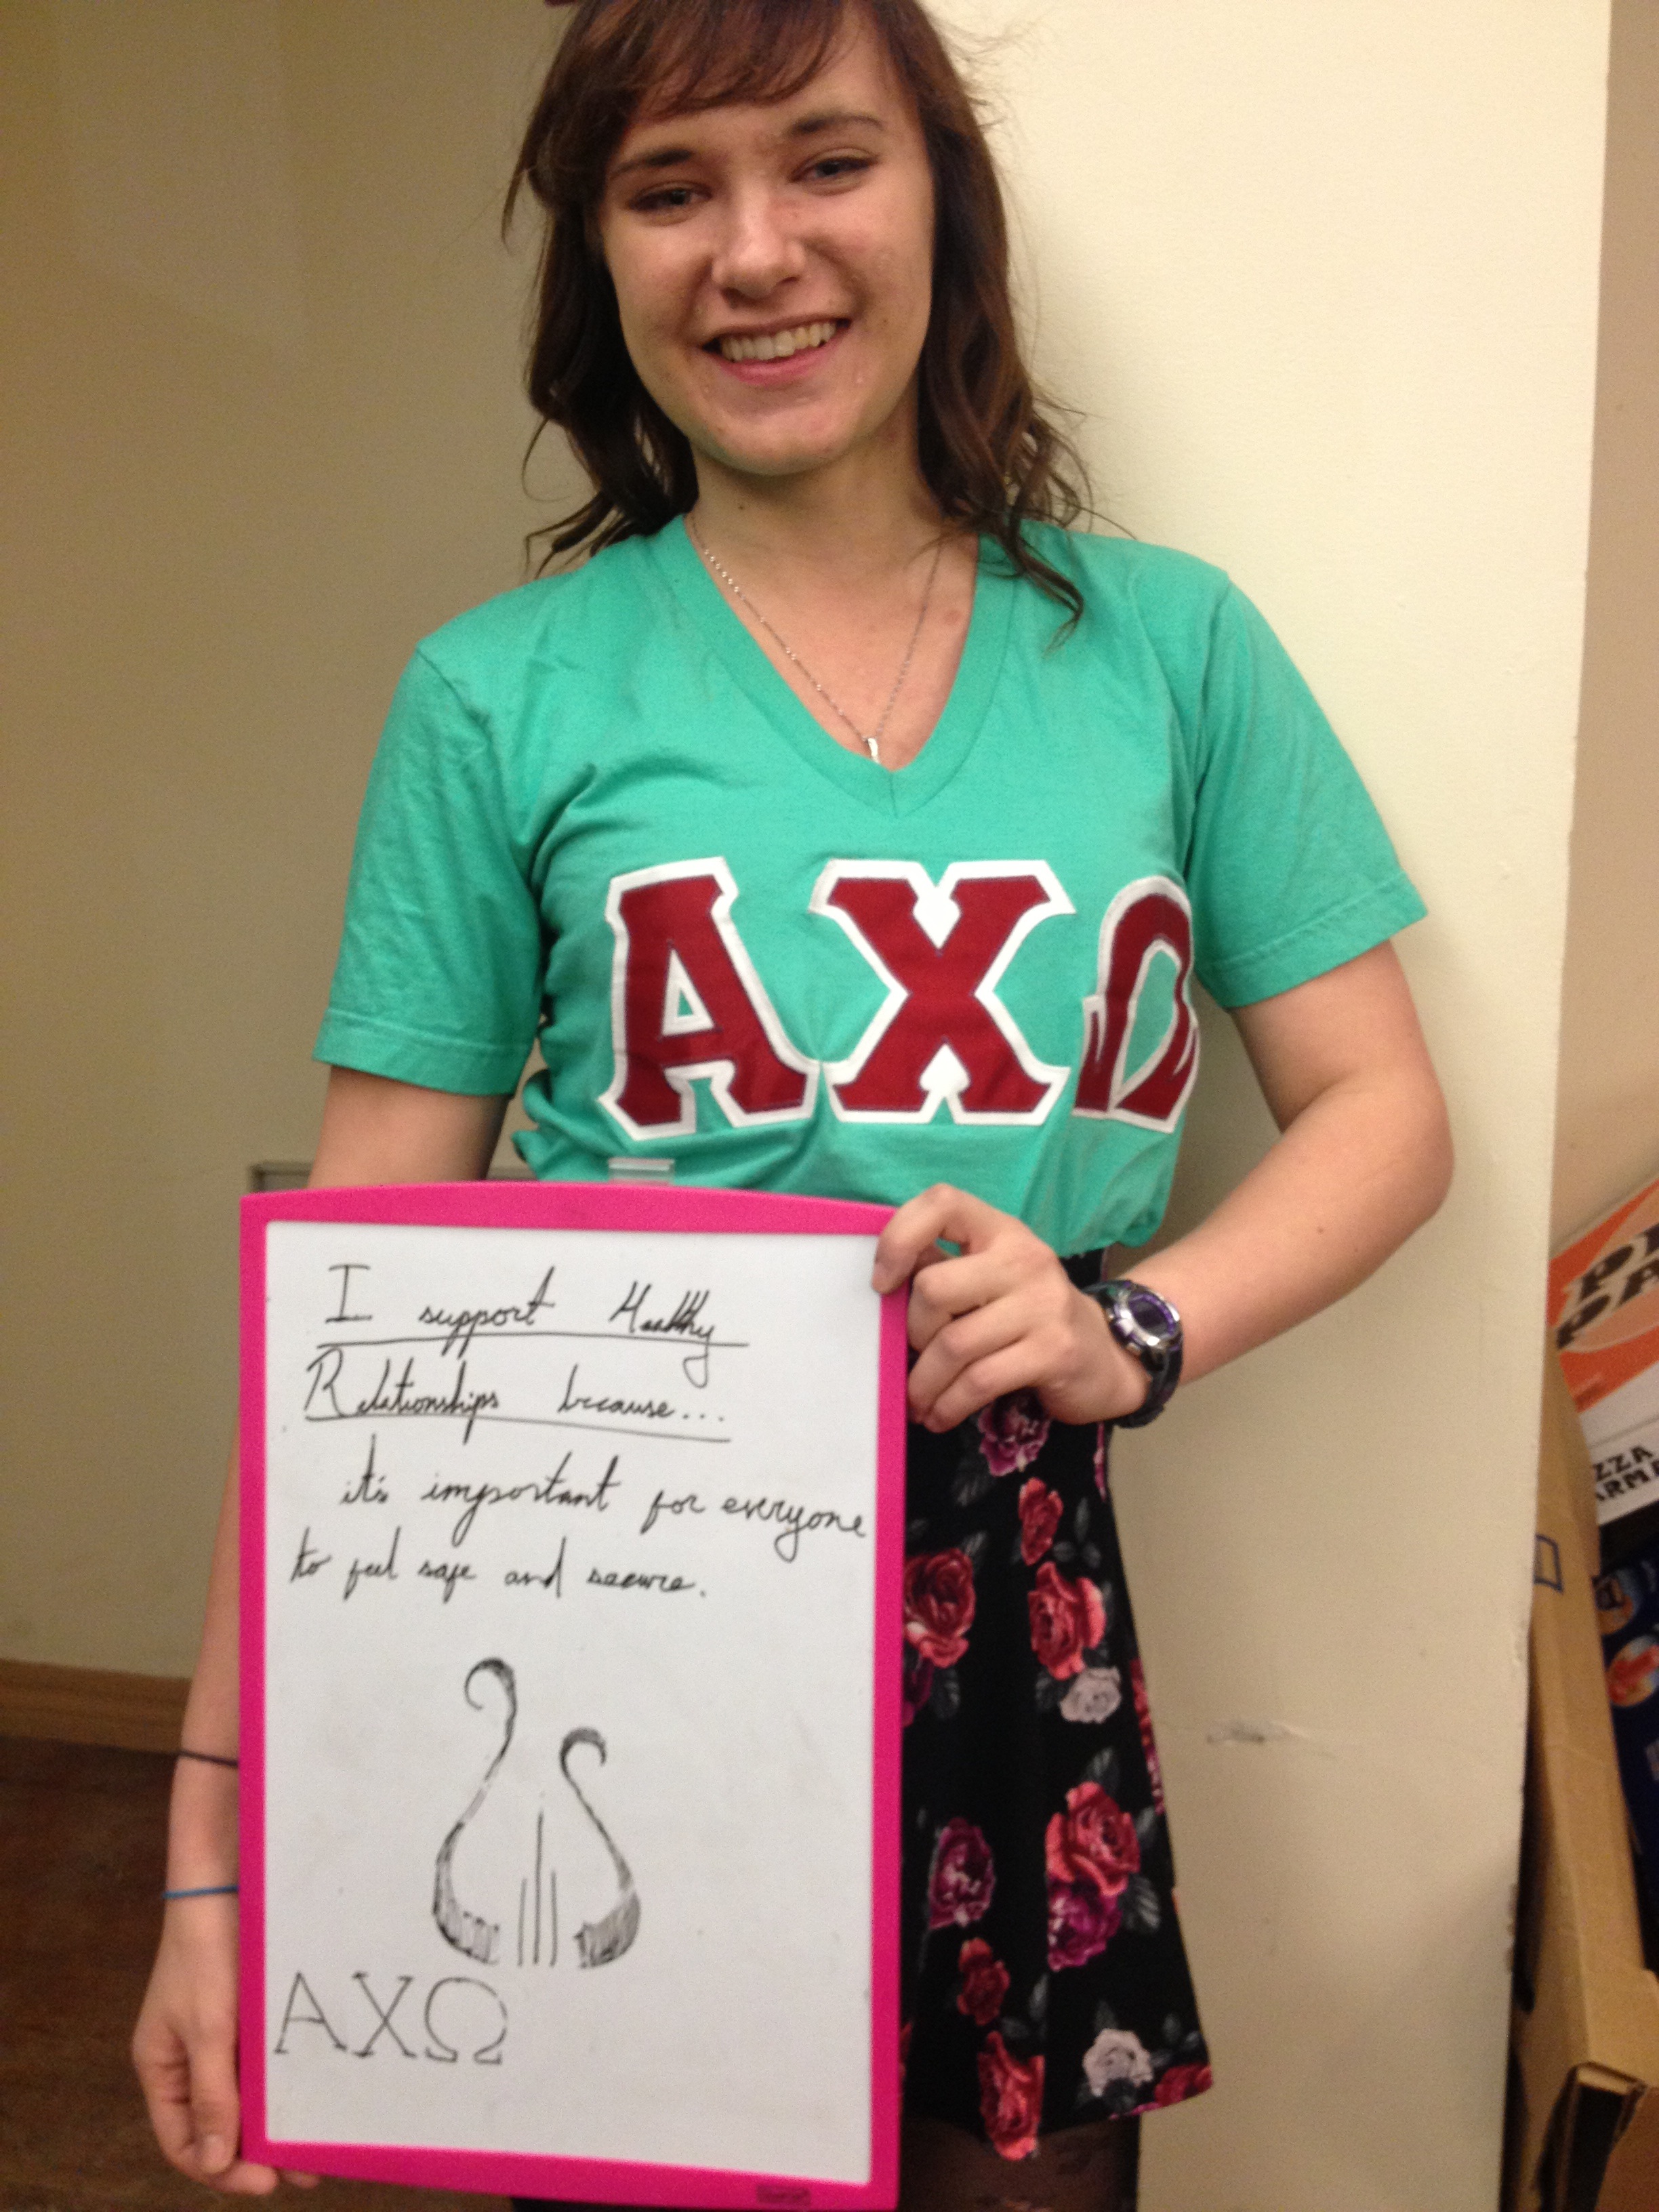 ΑΧΩ
I support Healthy
Relationships because...
it's important for everyone
to feel safe and secure.
ΑΧΩ
ZZA